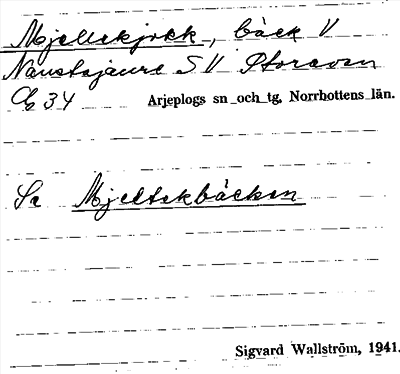 Mjellekjokk, bäck V
Naustajaure SV Storavan
34 Arjeplogs sn och tg, Norrbottens län.
Se Mjeltekbäcken
Sigvard Wallström, 1941.